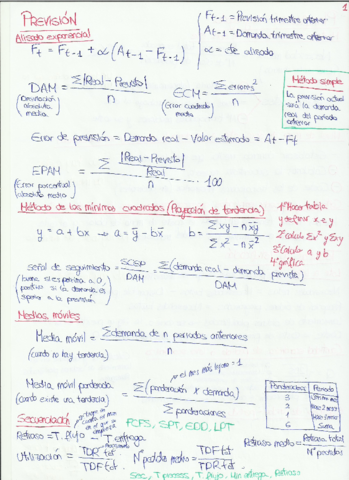 1
PREVISIÓN
Alisado exponencial
Ft = Ft-1 + α(At-1 - Ft-1)
Ft-1 = Previsión trimestre anterior
At-1 = Demanda trimestre anterior
α = cte alisado
DAM = Σ|Real - Previsto| / n
(Desviación absoluta media)
ECM = Σ errores² / n
(Error cuadrado medio)
Método simple
La previsión actual
será la demanda
real del periodo
anterior
Error de previsión = Demanda real - Valor estimado = At - Ft
EPAM = Σ |Real - Previsto| / Real / n · 100
(Error porcentual absoluto medio)
Método de los mínimos cuadrados (Proyección de tendencia)
1º Hacer tabla
y definir x e y
2º calculo Σx² y Σxy
3º calculo a y b
4º gráfica
y = a + bx → a = ȳ - bx̄
b = Σxy - nx̄ȳ / Σx² - nx̄²
señal de seguimiento = / DAM = Σ(demanda real - demanda prevista) / DAM
positivo si la demanda es
a la previsión)
Medias móviles
Media móvil = Σ demanda de n periodos anteriores / n
(cuando no hay tendencia)
Media móvil ponderada = Σ(ponderación x demanda) / Σ ponderaciones
(cuando existe una tendencia)
Ponderaciones Periodo
3
2
1
6 Suma
Secuenciación
FCFS, SPT, EDD, LPT
Retraso = T. flujo - T entrega
Retraso medio = Retraso total / Nº pedidos
Utilización = TDR tot / TDF tot
Nº pedido medio = TDF tot / TDR tot
Sec, T proceso, T flujo, Retraso